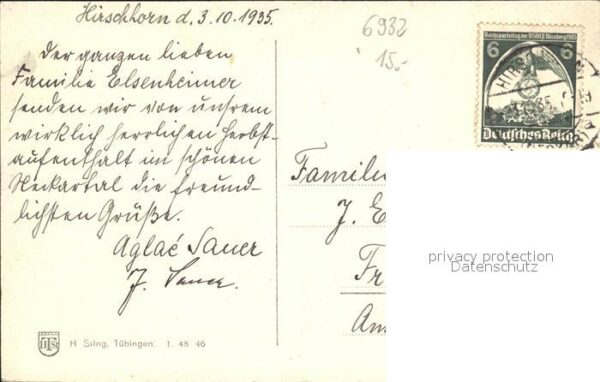 Hirschhorn d. 3.10.1935.
6932
15.-
Der ganzen lieben
Familie Elsenheimer
senden wir von unsrem
wirklich herrlichen Herbst-
aufenthalt im schönen
Neckartal die freund-
lichsten Grüße.
Aglaé Sauer
J. Sauer.
Reichsparteitag der NSDAP Nürnberg 1935
6 6
Deutsches Reich
HIRSCHHORN
Famili
J. E
Fr
Am
privacy protection
Datenschutz
H Sting, Tübingen. 1. 48 46